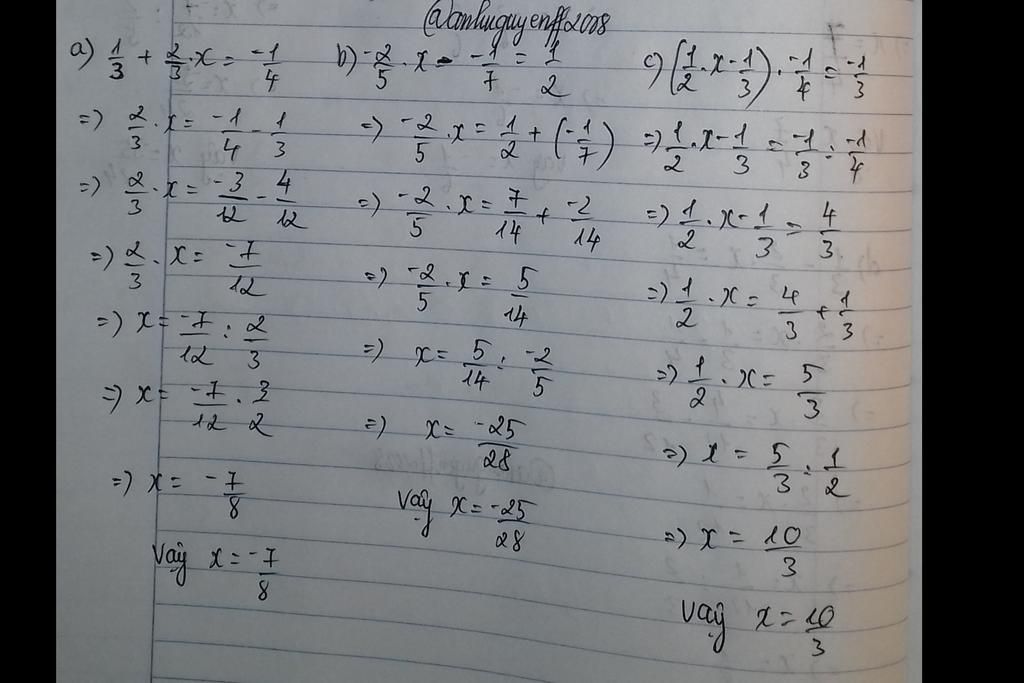 @anhnguyenff2008
a) 1/3 + 2/3 . x = -1/4
=) 2/3 . x = -1/4 - 1/3
=) 2/3 . x = -3/12 - 4/12
=) 2/3 . x = -7/12
=) x = -7/12 : 2/3
=) x = -7/12 . 3/2
=) x = -7/8
Vậy x = -7/8
b) -2/5 . x - -1/7 = 1/2
=) -2/5 . x = 1/2 + (-1/7)
=) -2/5 . x = 7/14 + -2/14
=) -2/5 . x = 5/14
=) x = 5/14 : -2/5
=) x = -25/28
Vậy x = -25/28
c) (1/2 . x - 1/3) . -1/4 = -1/3
=) 1/2 . x - 1/3 = -1/3 : -1/4
=) 1/2 . x - 1/3 = 4/3
=) 1/2 . x = 4/3 + 1/3
=) 1/2 . x = 5/3
=) x = 5/3 : 1/2
=) x = 10/3
Vậy x = 10/3